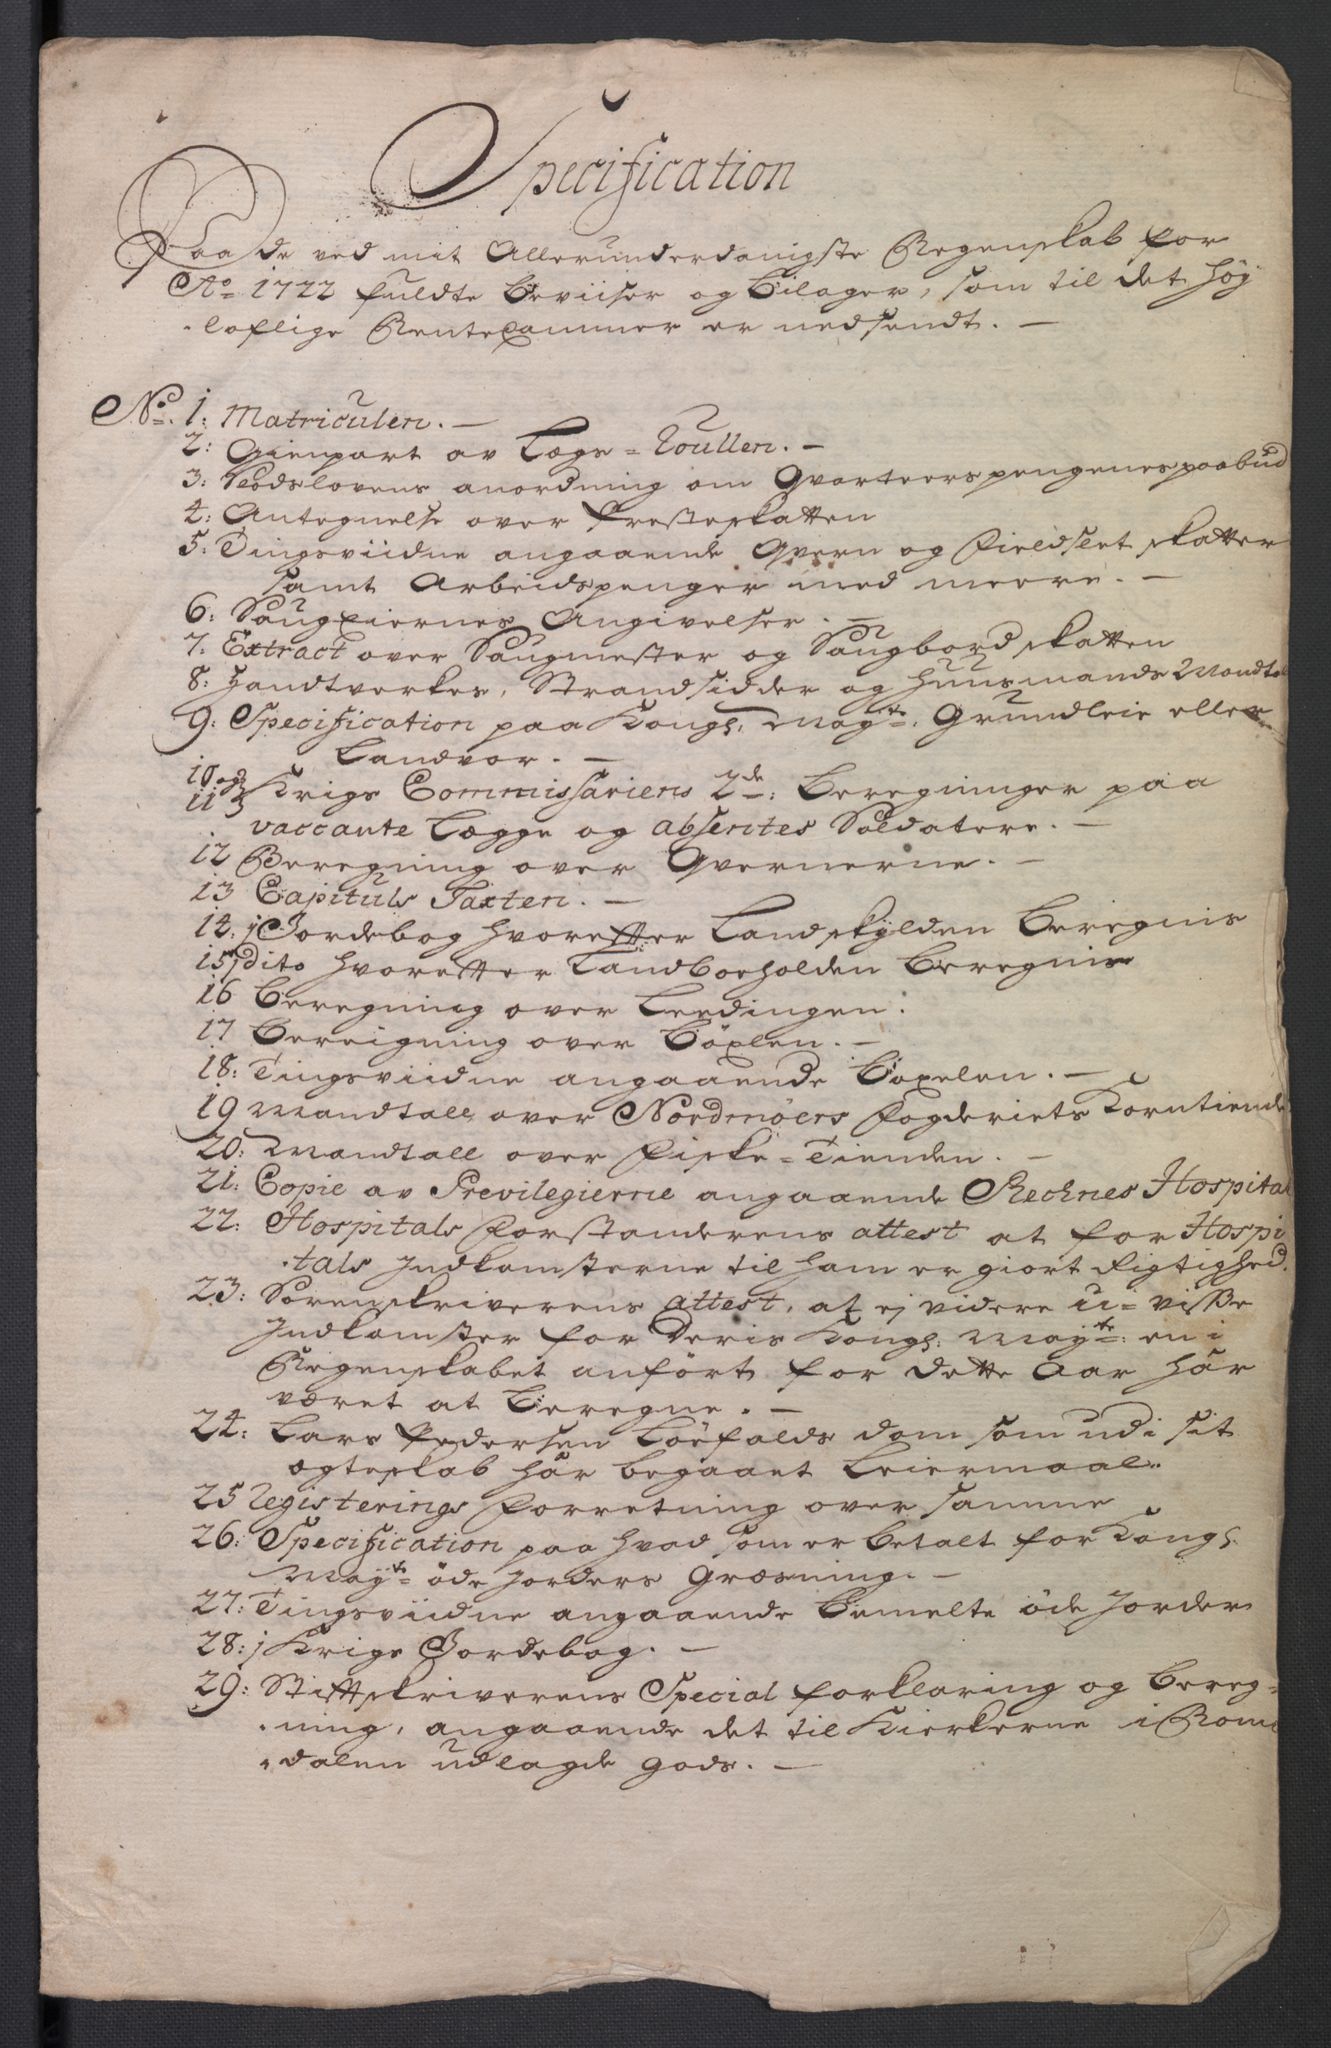 Specification
Paa de ved mit Allerunderdanigste Regenskab for
Ao 1722 fuldte Beviiser og Bilager, som til det Høy
loflige Rente Cammer er nedsendt. —
No. 1: Matriculen. —
2: Gienpart av Lægs=Roullen. —
3: anordning om Qvarteerspengenes paabud
4: Antegnelse over Presteskatten
5: Tingsviidne angaaende Qvern og Fieldslet skatter
samt Arbeidspenger med meere. —
6: Saug Eiernes Angivelser. —
7. Extract over Saugmester og Saugbord skatten
8: Handtverkes, Strandsidder og Huusmands Mandtal
9: Specification paa Kongl. Mayts. Grundleie eller
Landvor. —
10 og
11 Krigs Commissariens 2de: Beregninger paa
vaccante Lægge og absentes Soldatere. —
12 Beregning over Qvernerne. —
13 Capituls Taxten. —
14: Jordebog hvorefter Landskylden Beregnis
15 dito hvorefter Landboeholden Beregnis
16 Beregning over Leedingen.
17 Bereigning over Böxlen. —
18: Tingsviidne angaaende Böxelen. —
19 Mandtall over Nordmöers Fogderiets Korntiende
20: Mandtall over Fiske=Tienden. —
21: Copie av Previlegierne angaaende Reknes Hospital
22: Hospitals Forstanderens attest at for Hospi
tals Indkomsterne til ham er giort Rigtighed.
23: Sorenskriverens attest, at ej videre u=visse
Indkomster for Deris Kongl: Mayts: en i
Regenskabet anfört for dette Aar har
været at Beregne. —
24: Lars Pedersen Löefalds dom som udi sit
egteskab har begaaet Leiermaal.
25 Registerings Forretning over samme
26: Specification paa hvad som er betalt for Kongl.
Mayts öde Jorders Græsning. —
27: Tingsviidne angaaende bemelte öde Jorder
28: Krigs Jordebog. —
29: Stiftskriverens Special forklaring og Bereg=
ning, angaaende det til Kierkerne i Roms
dalen udlagde gods. —